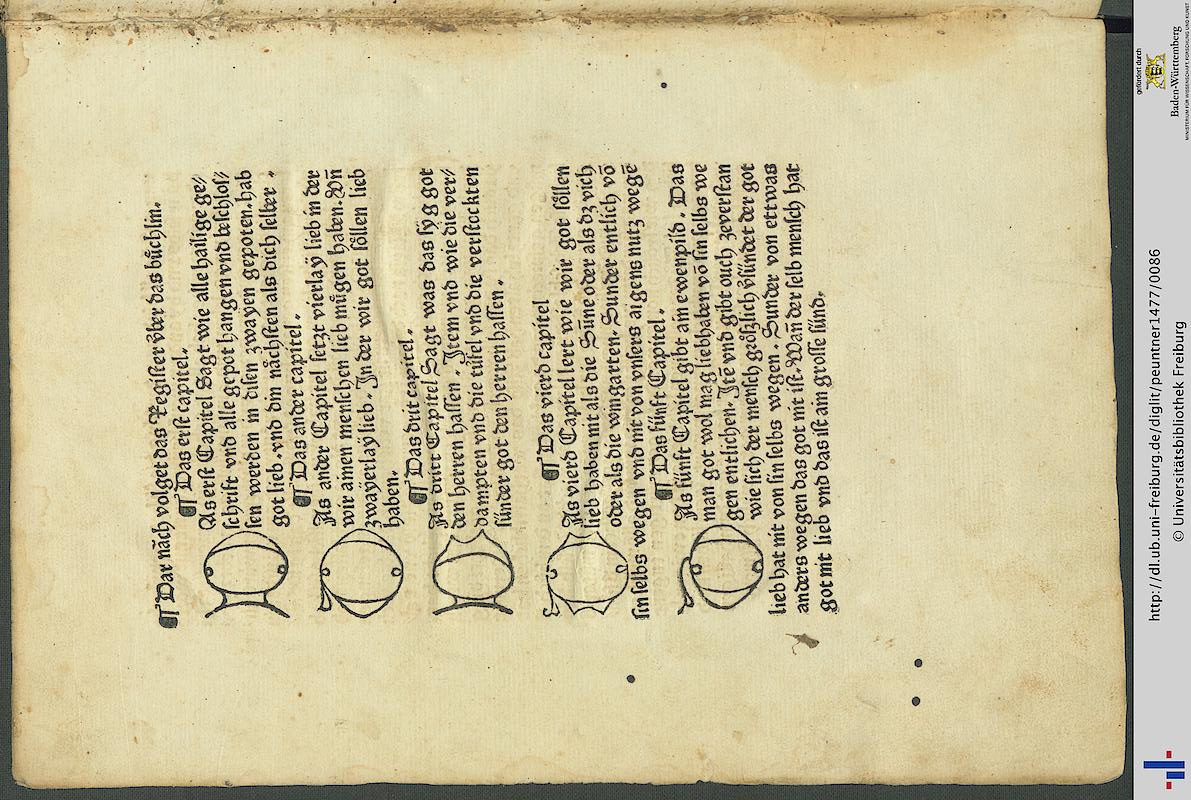 ¶ Dar nach volget das Register vͤber das buͤchlin.
¶ Das erst capitel.
DAs erst Capitel Sagt wie alle hailige ge⸗
schrift vnd alle gepot hangen vnd beschlos⸗
sen werden in disen zwayen gepoten. hab
got lieb. vnd din naͤchsten als dich selber.
¶ Das ander capitel.
DAs ander Capitel setzt vierlaÿ lieb in der
wir amen menschen lieb muͤgen haben. Vn̄
zwaÿerlaÿ lieb. In der wir got soͤllen lieb
haben.
¶ Das drit capitel.
DAs dritt Capitel Sagt was das sÿg got
den herren hassen. Item vnd wie die ver⸗
dampten vnd die tuͤfel vnd die verstockten
suͤnder got den herren hassen.
¶ Das vierd capitel
DAs vierd Capitel lert wie wir got soͤllen
lieb haben nit als die Suͤne oder als dz vich
oder als die wingarten. Sunder entlich vō
sin selbs wegen vnd nit von vnsers aigens nutz wegē
¶ Das fuͤnft Capitel.
DAs fuͤnft Capitel gibt ain ewenpild. Das
man got wol mag liebhaben vō sin selbs we
gen entlichen. Itē vnd gibt ouch zeverstan
wie sich der mensch groͤszlich v̓suͤndet der got
lieb hat nit von sin selbs wegen. Sunder von ettwas
anders wegen das got nit ist. Wan̄ der selb mensch hat
got nit lieb vnd das ist am grosse suͤnd.
http://dl.ub.uni-freiburg.de/diglit/peuntner1477/0086
© Universitätsbibliothek Freiburg
gefördert durch
Baden-Württemberg
MINISTERIUM FÜR WISSENSCHAFT, FORSCHUNG UND KUNST